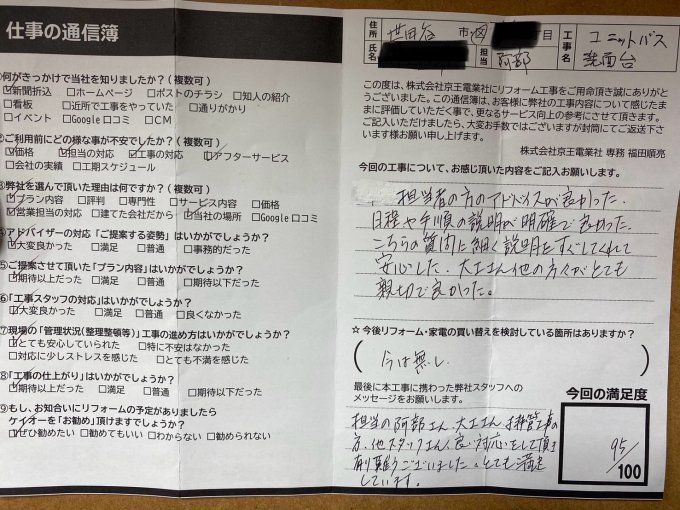 仕事の通信簿
①何がきっかけで当社を知りましたか？(複数可)
☑新聞折込 □ホームページ □ポストのチラシ □知人の紹介
□看板 □近所で工事をやっていた □通りがかり
□イベント □Google口コミ □CM
②ご利用前にどの様な事が不安でしたか？(複数可)
☑価格 ☑担当の対応 ☑工事の対応 ☑アフターサービス
□会社の実績 □工期スケジュール
③弊社を選んで頂いた理由は何ですか？(複数可)
☑プラン内容 □評判 □専門性 □サービス内容 □価格
☑営業担当の対応 □建てた会社だから ☑当社の場所 □Google口コミ
④アドバイザーの対応「ご提案する姿勢」はいかがでしょうか？
☑大変良かった □満足 □普通 □事務的だった
⑤ご提案させて頂いた「プラン内容」はいかがでしょうか？
☑期待以上だった □満足 □普通 □期待以下だった
⑥「工事スタッフの対応」はいかがでしょうか？
☑大変良かった □満足 □普通 □良くなかった
⑦現場の「管理状況(整理整頓等)」工事の進め方はいかがでしょうか？
☑とても安心していられた □特に不安はなかった
□対応に少しストレスを感じた □とても不満を感じた
⑧「工事の仕上がり」はいかがでしょうか？
☑期待以上だった □満足 □普通 □期待以下だった
⑨もし、お知合いにリフォームの予定がありましたら
ケイオーを「お勧め」頂けますでしょうか？
☑ぜひ勧めたい □勧めてもいい □わからない □勧められない
住所 世田谷 市区 目
氏名 担当 阿部
工事名 ユニットバス
洗面台
この度は、株式会社京王電業社にリフォーム工事をご用命頂き誠にありがと
うございました。この通信簿は、お客様に弊社の工事内容について感じたま
まに評価していただく事で、更なるサービス向上の参考にさせて頂きます。
ご記入いただけましたら、大変お手数ではございますが封筒にてご返送下さ
います様お願い申し上げます。
株式会社京王電業社 専務 福田順亮
今回の工事について、お感じ頂いた内容をご記入お願いします。
担当者の方のアドバイスが良かった。
日程や手順の説明が明確で良かった。
こちらの質問に細く説明をすぐしてくれて
安心した。大工さん他の方々がとても
親切で良かった。
☆今後リフォーム・家電の買い替えを検討している箇所はありますか？
(今は無し)
最後に本工事に携わった弊社スタッフへの
メッセージをお願いします。
担当の阿部さん、大工さん、水道管工事の
方、他スタッフさん良い対応をして頂き
有り難うございました。とても満足
しています。
今回の満足度
95/
100